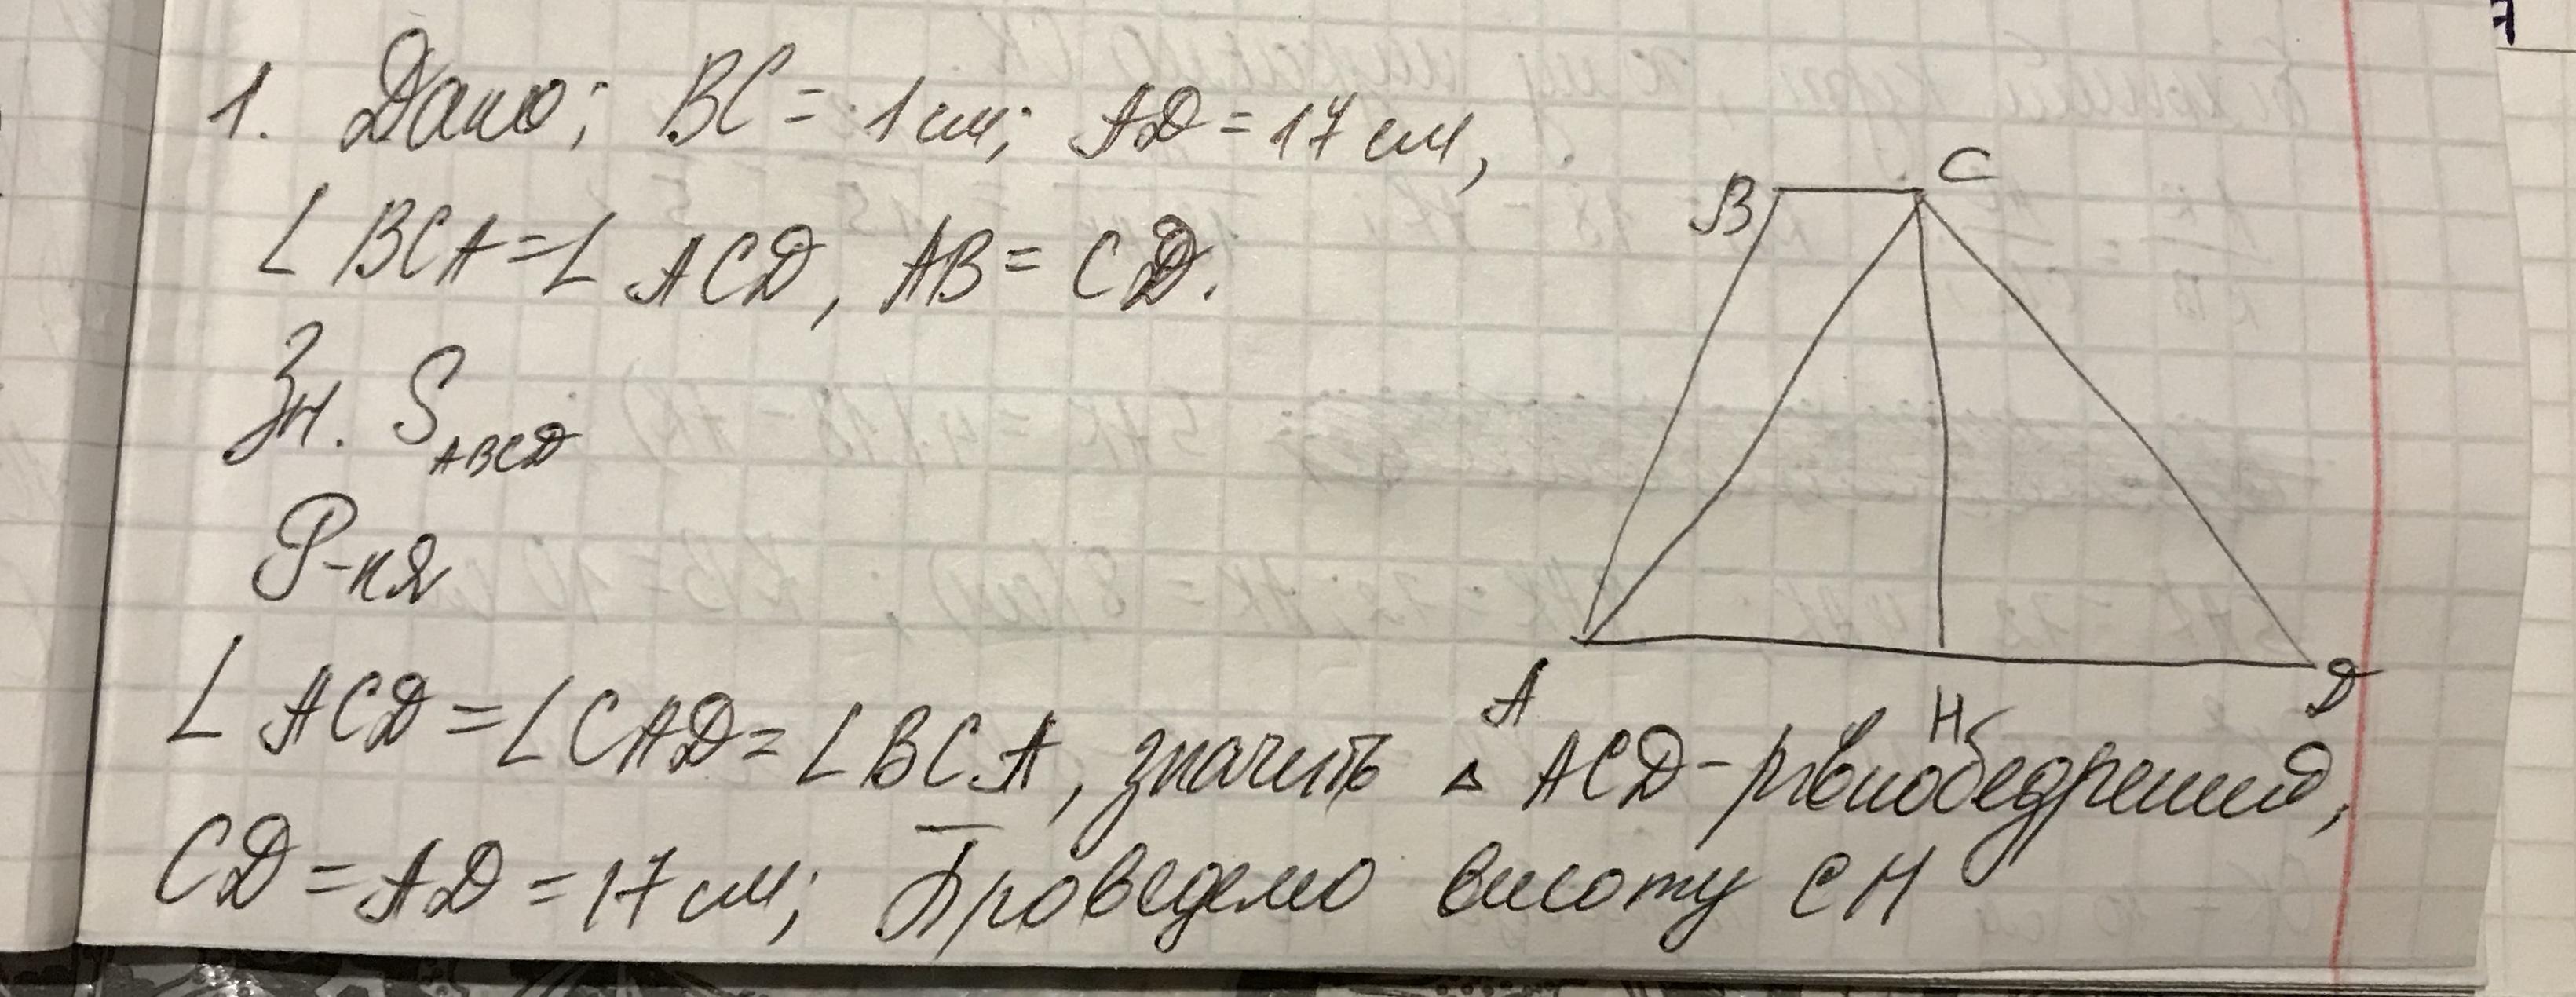 1. Дано; BC = 1 см; AD = 17 см,
∠ BCA = ∠ ACD, AB = CD.
Зн. S ABCD
Р-ня
∠ ACD = ∠ CAD = ∠ BCA, значить △ ACD - рівнобедрений,
CD = AD = 17 см; Проведемо висоту CH
B C
A H D